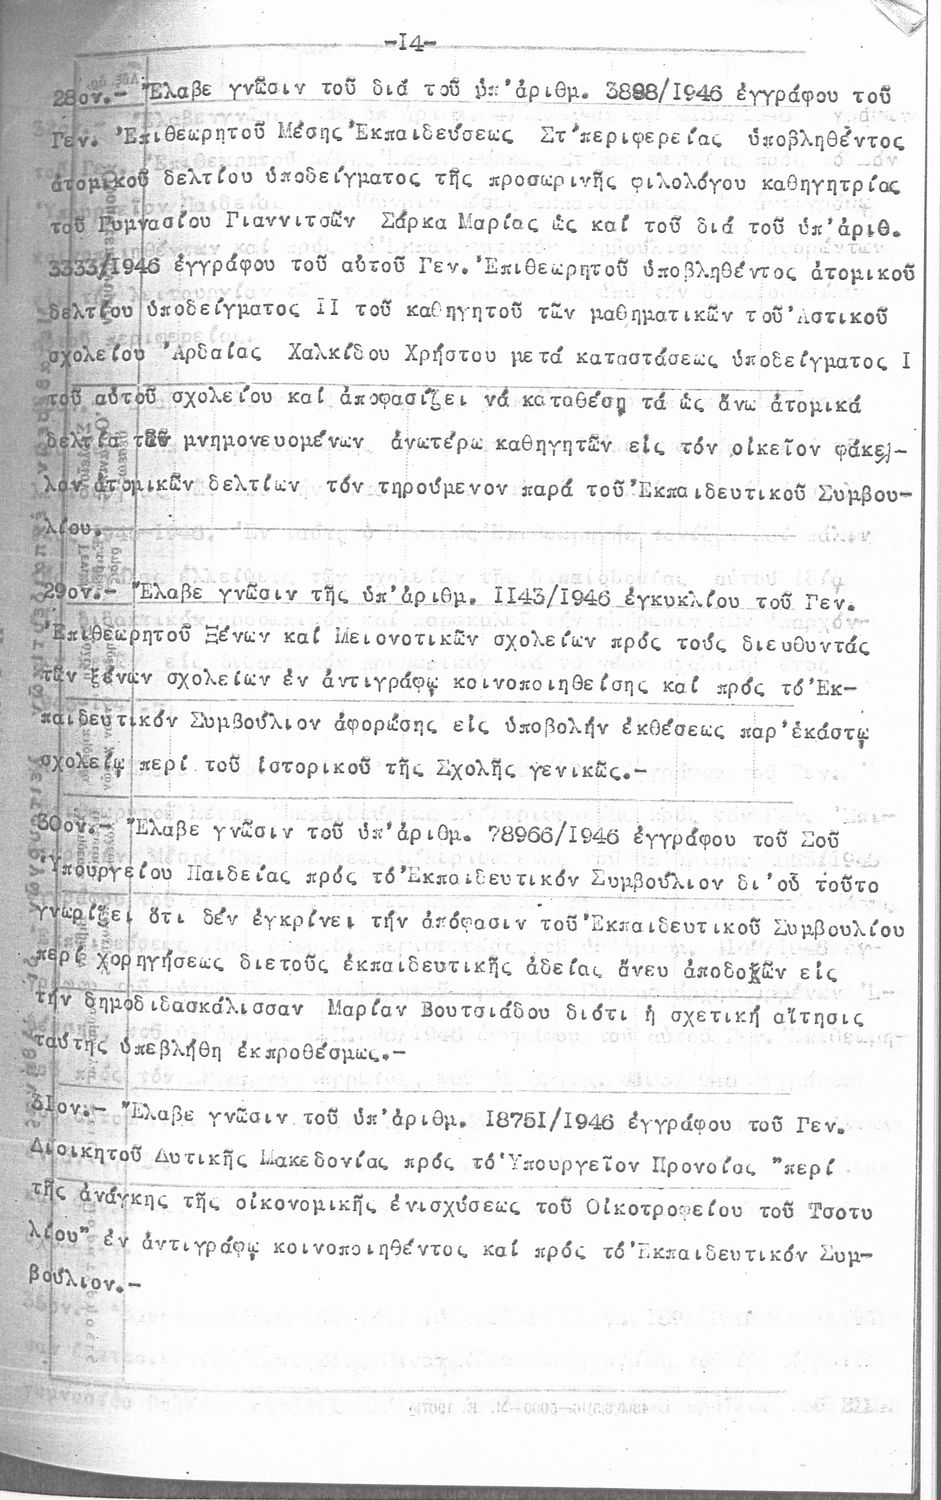 -I4-
28ον.- Ἔλαβε γνῶσιν τοῦ διά τοῦ ὑπ'ἀριθμ. 3898/I946 ἐγγράφου τοῦ
Γεν. Ἐπιθεωρητοῦ Μέσης Ἐκπαιδεύσεως Στ'περιφερείας ὑποβληθέντος
ἀτομικοῦ δελτίου ὑποδείγματος τῆς προσωρινῆς φιλολόγου καθηγητρίας
τοῦ Γυμνασίου Γιαννιτσῶν Σάρκα Μαρίας ὡς καί τοῦ διά τοῦ ὑπ'ἀριθ.
3333/I946 ἐγγράφου τοῦ αὐτοῦ Γεν. Ἐπιθεωρητοῦ ὑποβληθέντος ἀτομικοῦ
δελτίου ὑποδείγματος II τοῦ καθηγητοῦ τῶν μαθηματικῶν τοῦ Ἀστικοῦ
σχολείου Ἀρδαίας Χαλκίδου Χρήστου μετά καταστάσεως ὑποδείγματος I
τοῦ αὐτοῦ σχολείου καί ἀποφασίζει νά καταθέση τά ὡς ἄνω ἀτομικά
δελτία τῶν μνημονευομένων ἀνωτέρω καθηγητῶν εἰς τόν οἰκεῖον φάκε-
λον ἀτομικῶν δελτίων τόν τηρούμενον παρά τοῦ Ἐκπαιδευτικοῦ Συμβου-
λίου.
29ον.- Ἔλαβε γνῶσιν τῆς ὑπ'ἀριθμ. II43/I946 ἐγκυκλίου τοῦ Γεν.
Ἐπιθεωρητοῦ Ξένων καί Μειονοτικῶν σχολείων πρός τούς διευθυντάς
τῶν ξένων σχολείων ἐν ἀντιγράφῳ κοινοποιηθείσης καί πρός τό Ἐκ-
παιδευτικόν Συμβούλιον ἀφορώσης εἰς ὑποβολήν ἐκθέσεως παρ'ἑκάστῳ
σχολείῳ περί τοῦ ἱστορικοῦ τῆς Σχολῆς γενικῶς.-
30ον.- Ἔλαβε γνῶσιν τοῦ ὑπ'ἀριθμ. 78966/I946 ἐγγράφου τοῦ Σοῦ
Ὑπουργείου Παιδείας πρός τό Ἐκπαιδευτικόν Συμβούλιον δι'οὗ τοῦτο
γνωρίζει ὅτι δέν ἐγκρίνει τήν ἀπόφασιν τοῦ Ἐκπαιδευτικοῦ Συμβουλίου
περί χορηγήσεως διετοῦς ἐκπαιδευτικῆς ἀδείας ἄνευ ἀποδοχῶν εἰς
τήν δημοδιδασκάλισσαν Μαρίαν Βουτσιάδου διότι ἡ σχετική αἴτησις
ταύτης ὑπεβλήθη ἐκπροθέσμως.-
3Iον.- Ἔλαβε γνῶσιν τοῦ ὑπ'ἀριθμ. I875I/I946 ἐγγράφου τοῦ Γεν.
Διοικητοῦ Δυτικῆς Μακεδονίας πρός τό Ὑπουργεῖον Προνοίας "περί
τῆς ἀνάγκης τῆς οἰκονομικῆς ἐνισχύσεως τοῦ Οἰκοτροφείου τοῦ Τσοτυ
λίου" ἐν ἀντιγράφῳ κοινοποιηθέντος καί πρός τό Ἐκπαιδευτικόν Συμ-
βούλιον.-